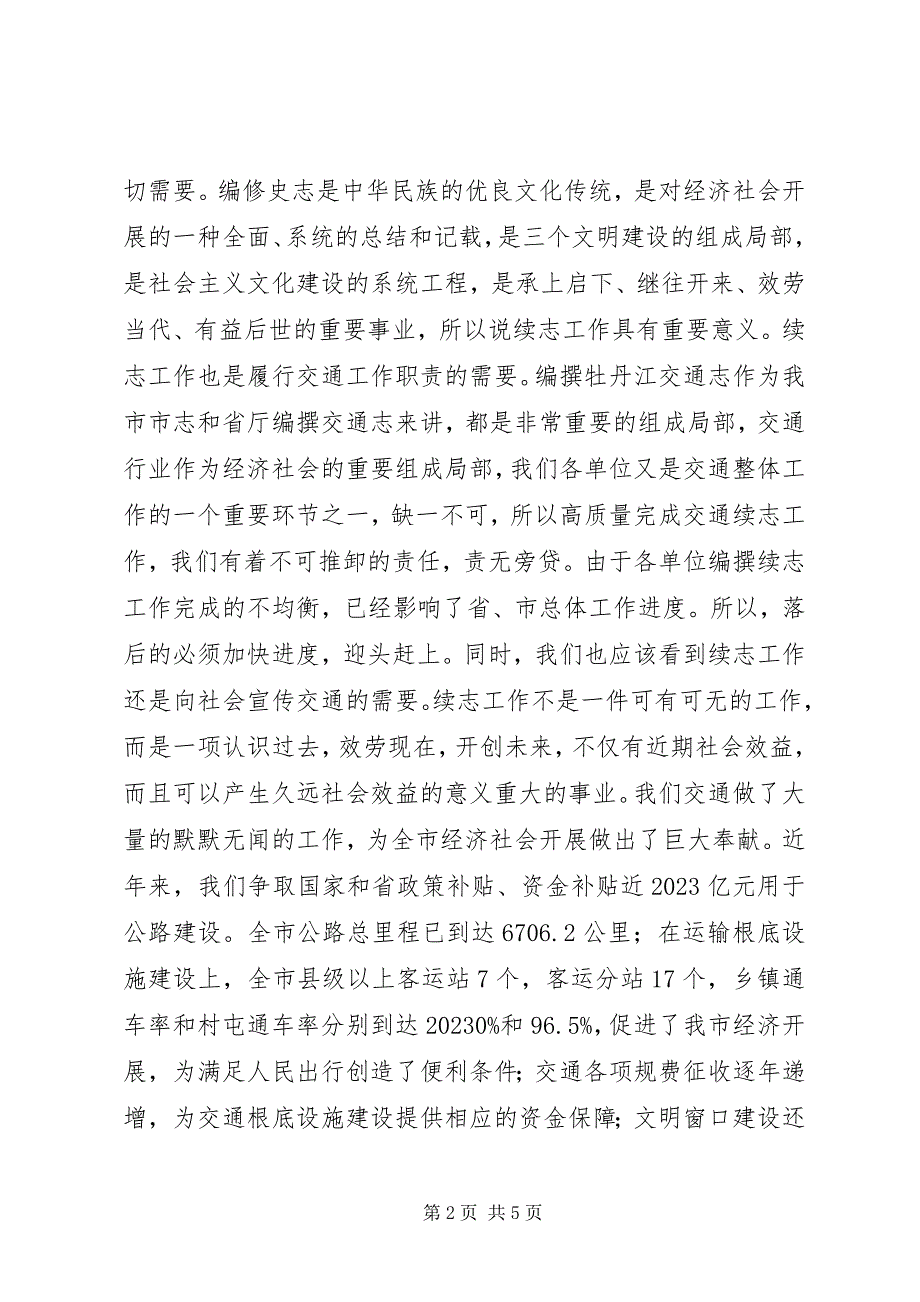 切需要。编修史志是中华民族的优良文化传统，是对经济社会开
展的一种全面、系统的总结和记载，是三个文明建设的组成局部，
是社会主义文化建设的系统工程，是承上启下、继往开来、效劳
当代、有益后世的重要事业，所以说续志工作具有重要意义。续
志工作也是履行交通工作职责的需要。编撰牡丹江交通志作为我
市市志和省厅编撰交通志来讲，都是非常重要的组成局部，交通
行业作为经济社会的重要组成局部，我们各单位又是交通整体工
作的一个重要环节之一，缺一不可，所以高质量完成交通续志工
作，我们有着不可推卸的责任，责无旁贷。由于各单位编撰续志
工作完成的不均衡，已经影响了省、市总体工作进度。所以，落
后的必须加快进度，迎头赶上。同时，我们也应该看到续志工作
还是向社会宣传交通的需要。续志工作不是一件可有可无的工作，
而是一项认识过去，效劳现在，开创未来，不仅有近期社会效益，
而且可以产生久远社会效益的意义重大的事业。我们交通做了大
量的默默无闻的工作，为全市经济社会开展做出了巨大奉献。近
年来，我们争取国家和省政策补贴、资金补贴近 2023 亿元用于
公路建设。全市公路总里程已到达 6706.2 公里；在运输根底设
施建设上，全市县级以上客运站 7 个，客运分站 17 个，乡镇通
车率和村屯通车率分别到达 20230%和 96.5%，促进了我市经济开
展，为满足人民出行创造了便利条件；交通各项规费征收逐年递
增，为交通根底设施建设提供相应的资金保障；文明窗口建设还
第 2 页 共 5 页